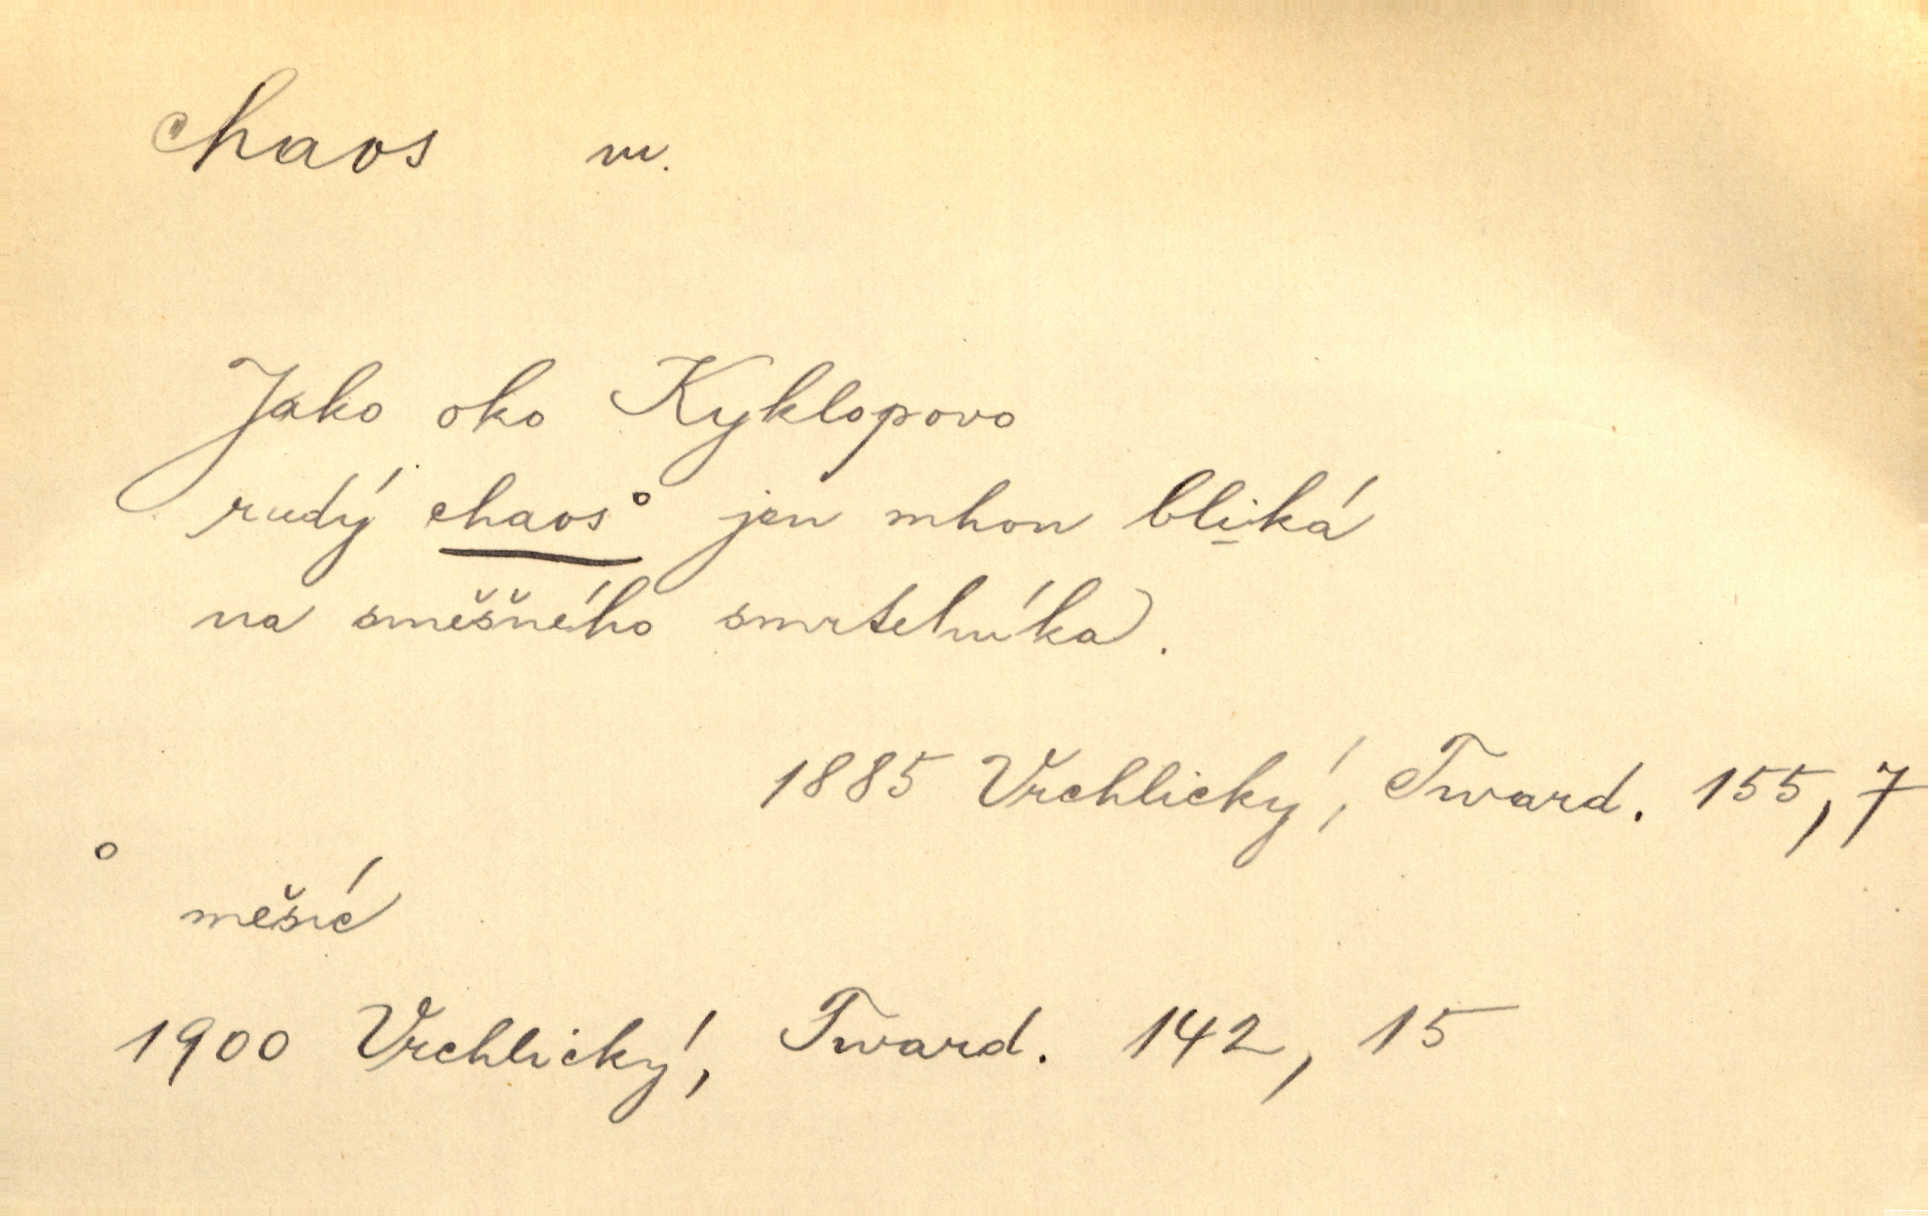 chaos m.
Jako oko Kyklopovo
rudý chaos° jen mhou bliká
na směšného smrtelníka.
1885 Vrchlický, Tward. 155, 7
° měsíc
1900 Vrchlický, Tward. 142, 15